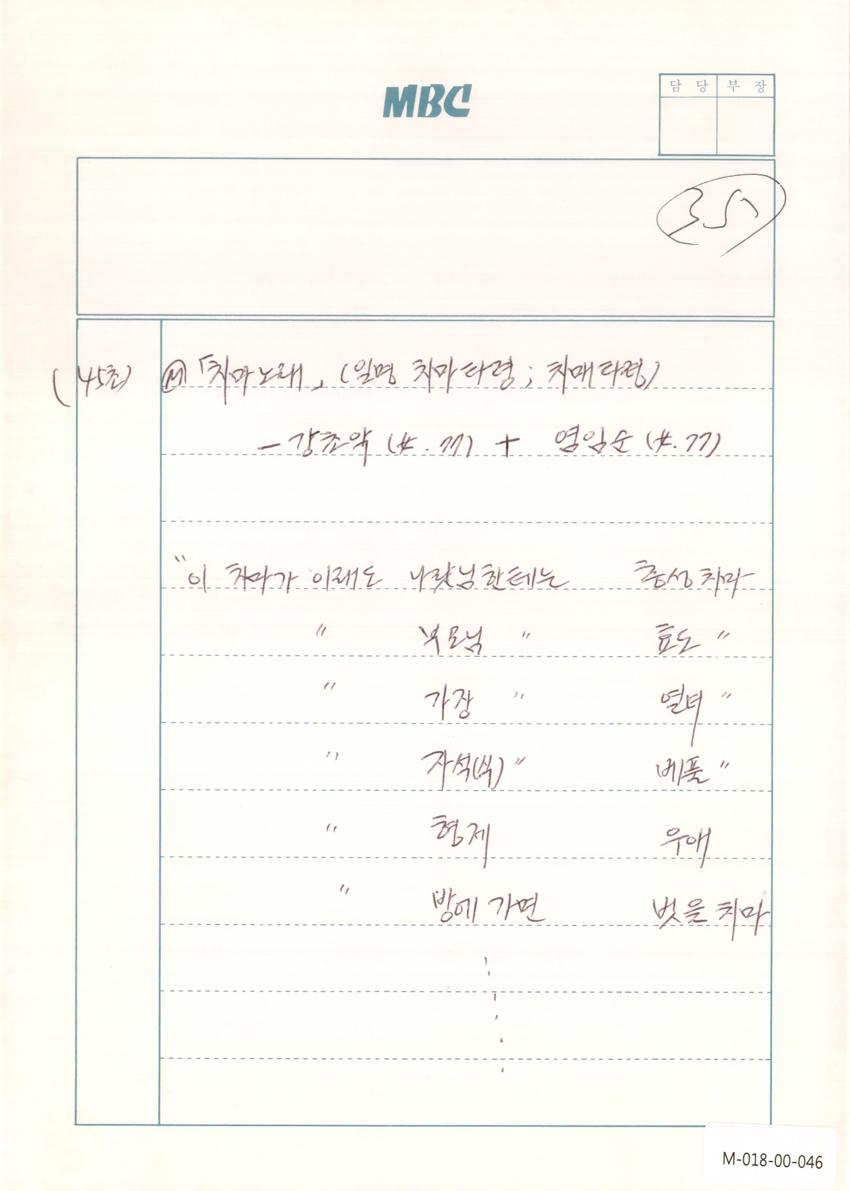 MBC
담 당 부 장
35
(45초) Ⓜ 「치마노래」 (일명 치마타령; 치매타령)
- 강초악 (女. 77) + 염임순 (女. 77)
"이 치마가 이래도 나랏님한테는 충성치마
" 부모님 " 효도 "
" 가장 " 열녀 "
" 자석(식) " 베풀 "
" 형제 우애
" 방에 가면 벗을 치마
M-018-00-046